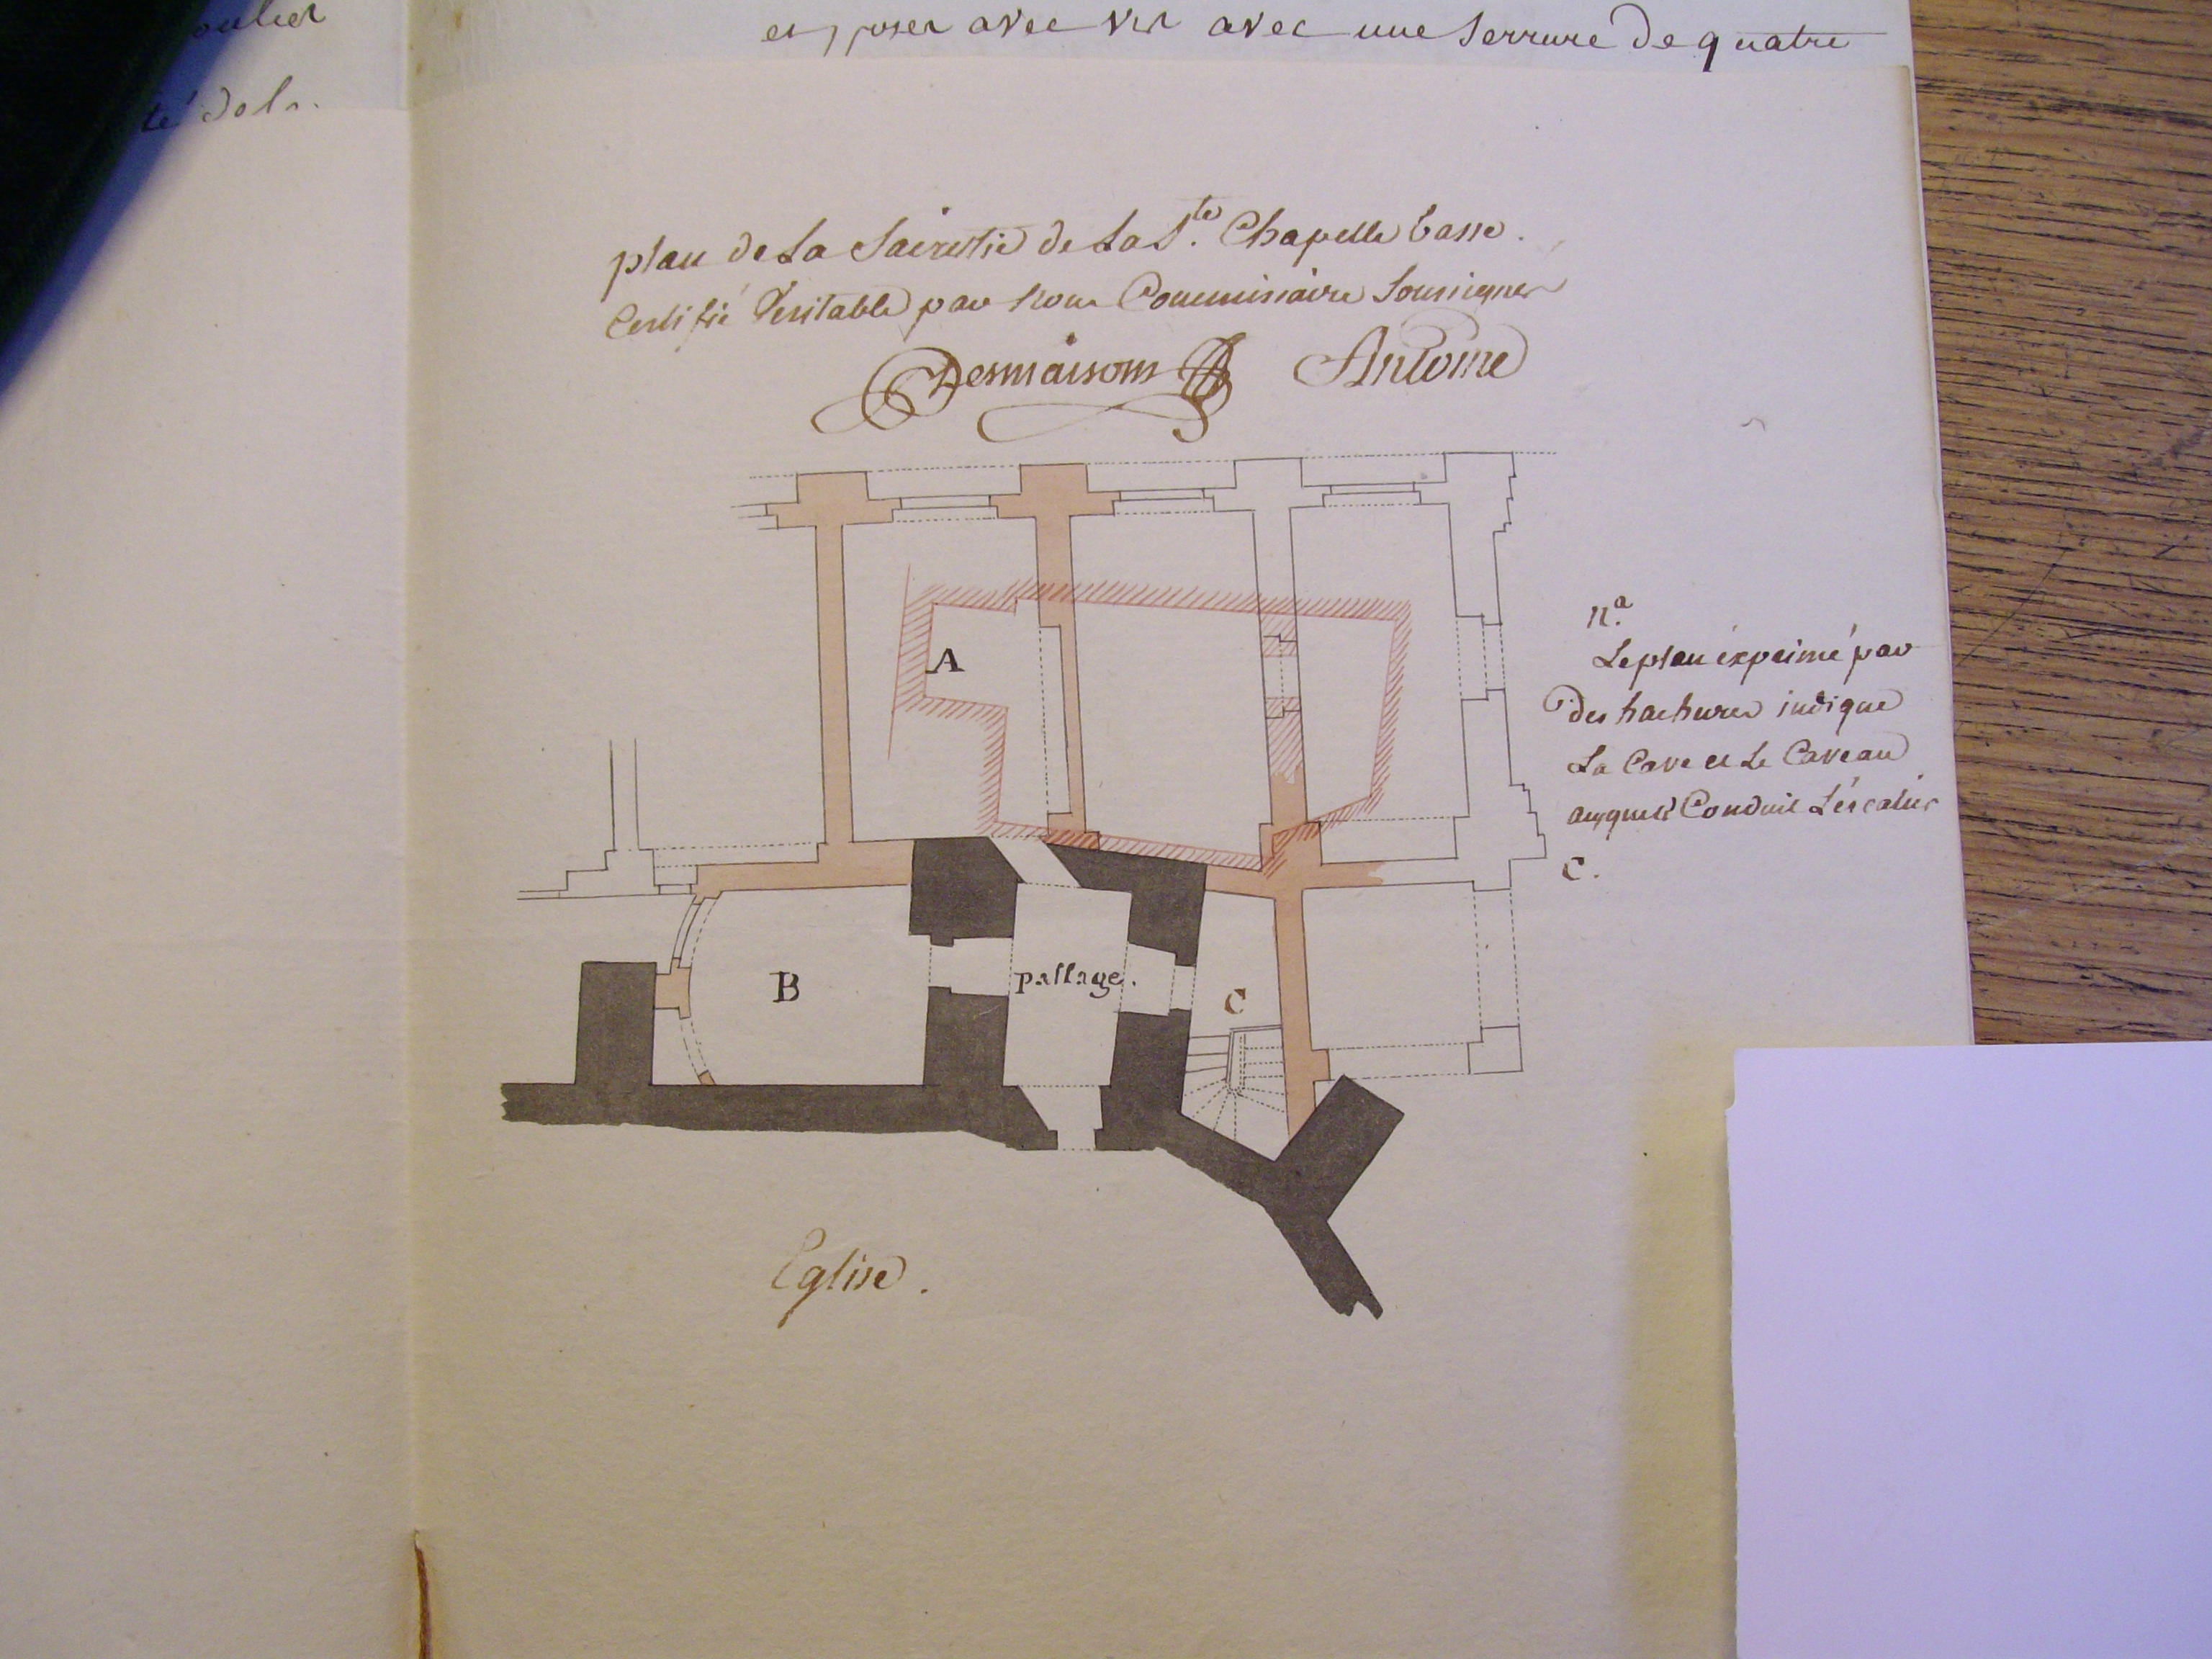 oulier
té de la
et poser avec vis avec une Serrure de quatre
plan de La Sacristie de La S.te Chapelle basse.
Certifié Veritable par Nous Commissaire Soussignés
Desmaisons Antoine
N.a
Le plan éxprimé par
des hachures indique
La Cave et Le Caveau
auquel Conduit L'éscalier
C.
A
B
passage.
C
Eglise.